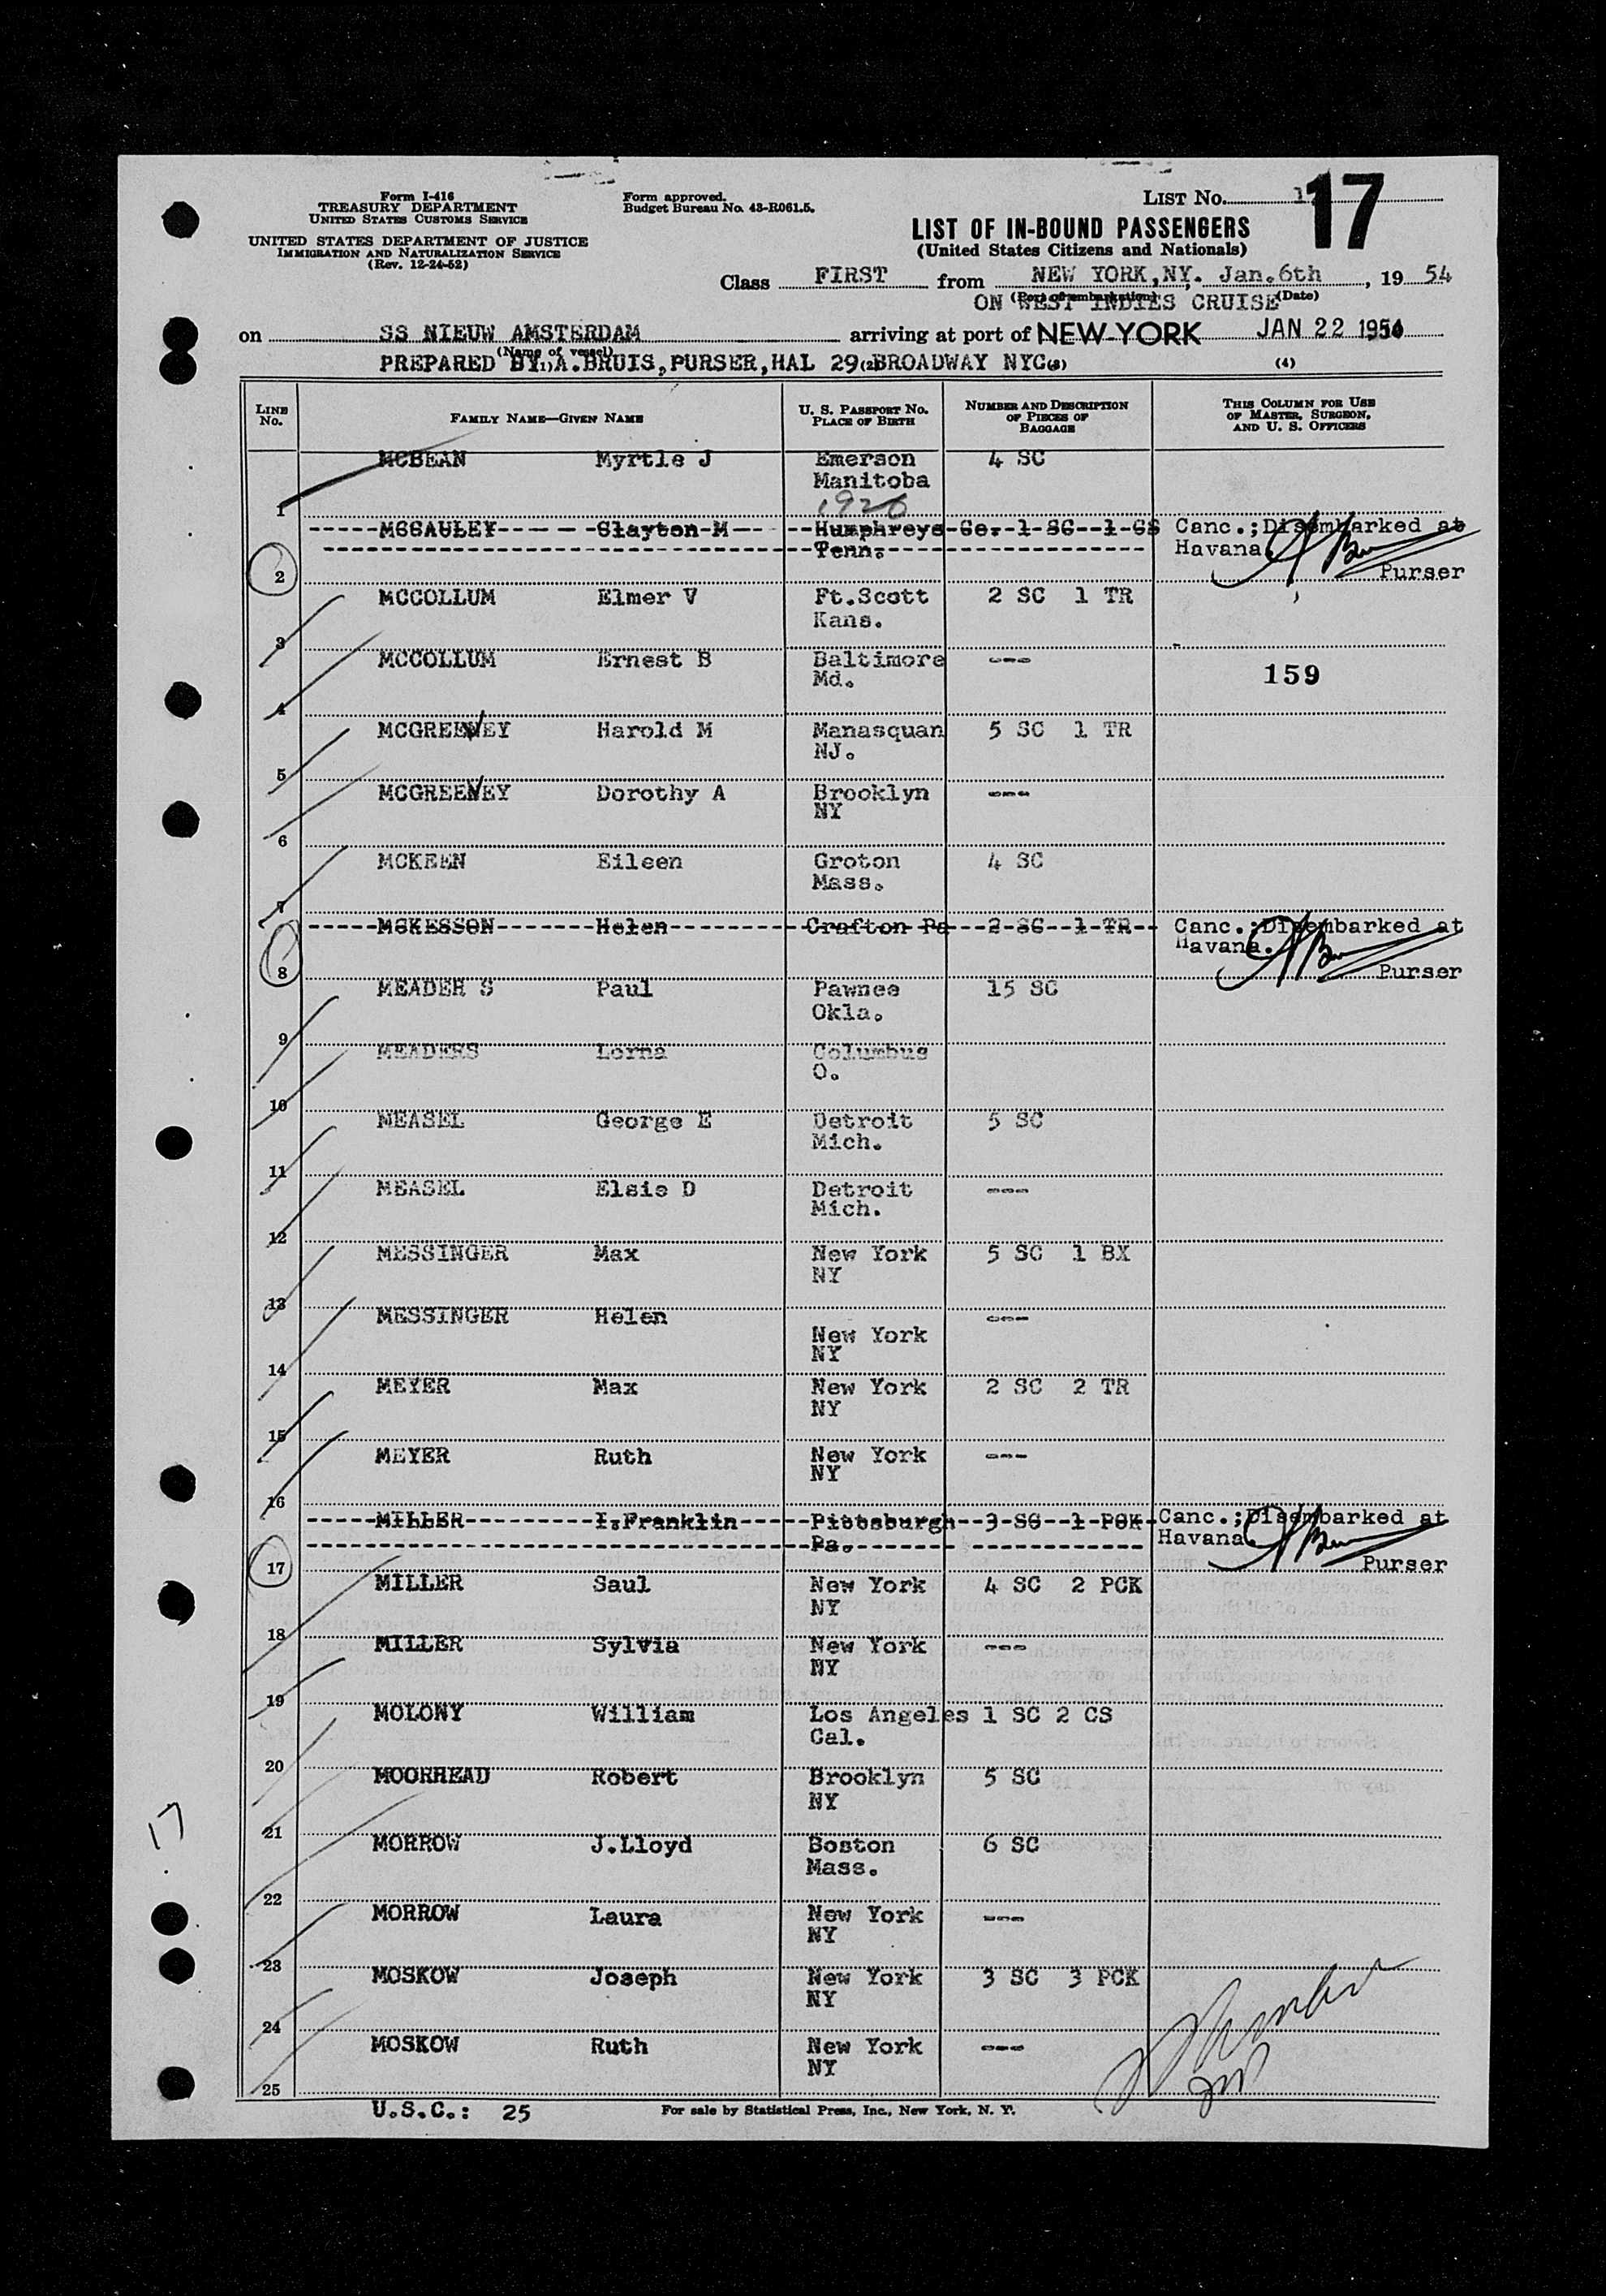 Form I-416
TREASURY DEPARTMENT
UNITED STATES CUSTOMS SERVICE
UNITED STATES DEPARTMENT OF JUSTICE
IMMIGRATION AND NATURALIZATION SERVICE
(Rev. 12-24-52)
Form approved.
Budget Bureau No. 43-R061.5.
LIST No. 17
LIST OF IN-BOUND PASSENGERS
(United States Citizens and Nationals)
Class FIRST from NEW YORK,NY. Jan.6th, 19 54
(Port of embarkation) (Date)
ON WEST INDIES CRUISE
on SS NIEUW AMSTERDAM arriving at port of NEW YORK JAN 22 1954
(Name of vessel)
PREPARED BY A.BRUIS,PURSER,HAL 29 BROADWAY NYC
(1) (2) (3) (4)
LINE No. FAMILY NAME—GIVEN NAME U. S. PASSPORT NO. PLACE OF BIRTH NUMBER AND DESCRIPTION OF PIECES OF BAGGAGE THIS COLUMN FOR USE OF MASTER, SURGEON, AND U. S. OFFICERS
MCBEAN Myrtle J Emerson 4 SC
Manitoba
1926
1
MCCAULEY Clayton M Humphreys Co. 1 SC 1 CS Canc.;Disembarked at
Penn. Havana.
2 Purser
MCCOLLUM Elmer V Ft.Scott 2 SC 1 TR
Kans.
3
MCCOLLUM Ernest B Baltimore ---
Md. 159
4
MCGREEVEY Harold M Manasquan 5 SC 1 TR
NJ.
5
MCGREEVEY Dorothy A Brooklyn ---
NY
6
MCKEEN Eileen Groton 4 SC
Mass.
7
MCKESSON Helen Crafton Pa 2 SC 1 TR Canc.;Disembarked at
Havana.
8 Purser
MEADER S Paul Pawnee 15 SC
Okla.
9
MEADERS Lorna Columbus
O.
10
MEASEL George E Detroit 5 SC
Mich.
11
MEASEL Elsie D Detroit ---
Mich.
12
MESSINGER Max New York 5 SC 1 BX
NY
13
MESSINGER Helen ---
New York
NY
14
MEYER Max New York 2 SC 2 TR
NY
15
MEYER Ruth New York ---
NY
16
MILLER I.Franklin Pittsburgh 3 SC 1 PCK Canc.;Disembarked at
Pa. Havana.
17 Purser
MILLER Saul New York 4 SC 2 PCK
NY
18
MILLER Sylvia New York ---
NY
19
MOLONY William Los Angeles 1 SC 2 CS
Cal.
20
MOORHEAD Robert Brooklyn 5 SC
NY
17
21
MORROW J.Lloyd Boston 6 SC
Mass.
22
MORROW Laura New York ---
NY
23
MOSKOW Joseph New York 3 SC 3 PCK
NY
24
MOSKOW Ruth New York ---
NY
25
U.S.C.: 25
For sale by Statistical Press, Inc., New York, N. Y.